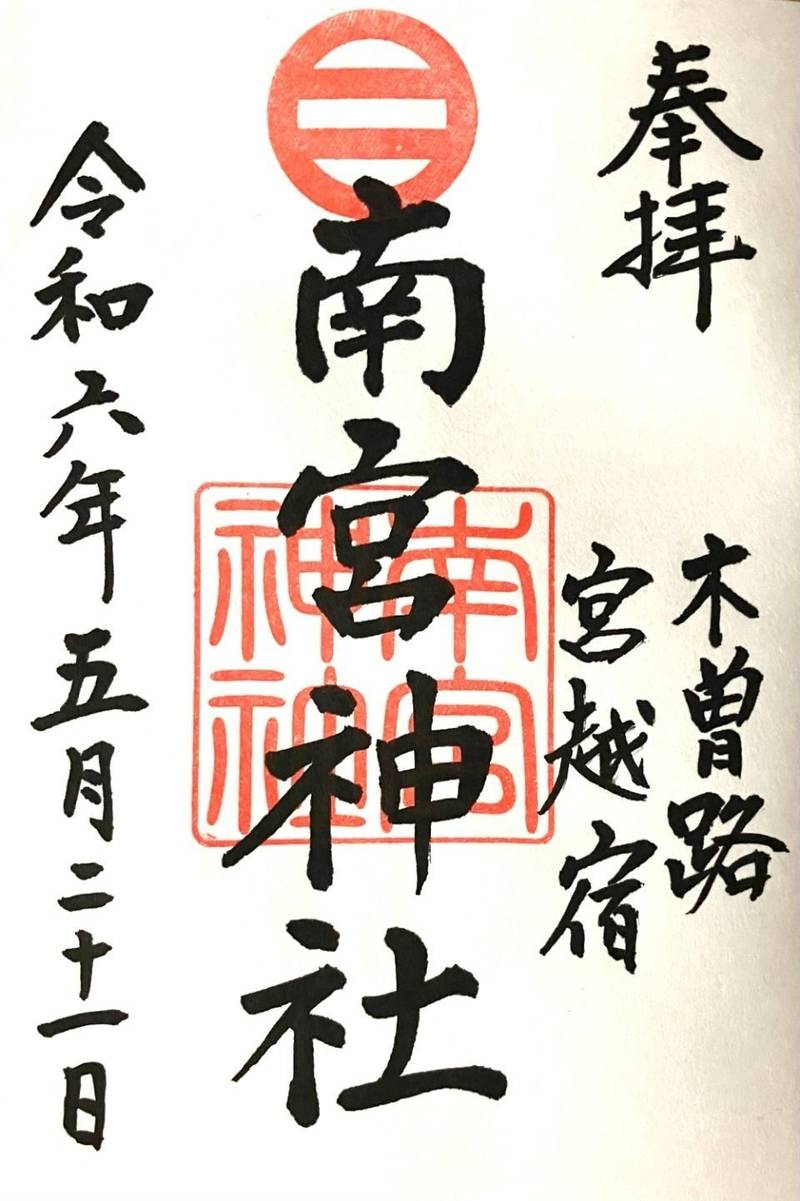 奉拝
木曽路
宮越宿
南宮神社
南宮
神社
令和六年五月二十一日